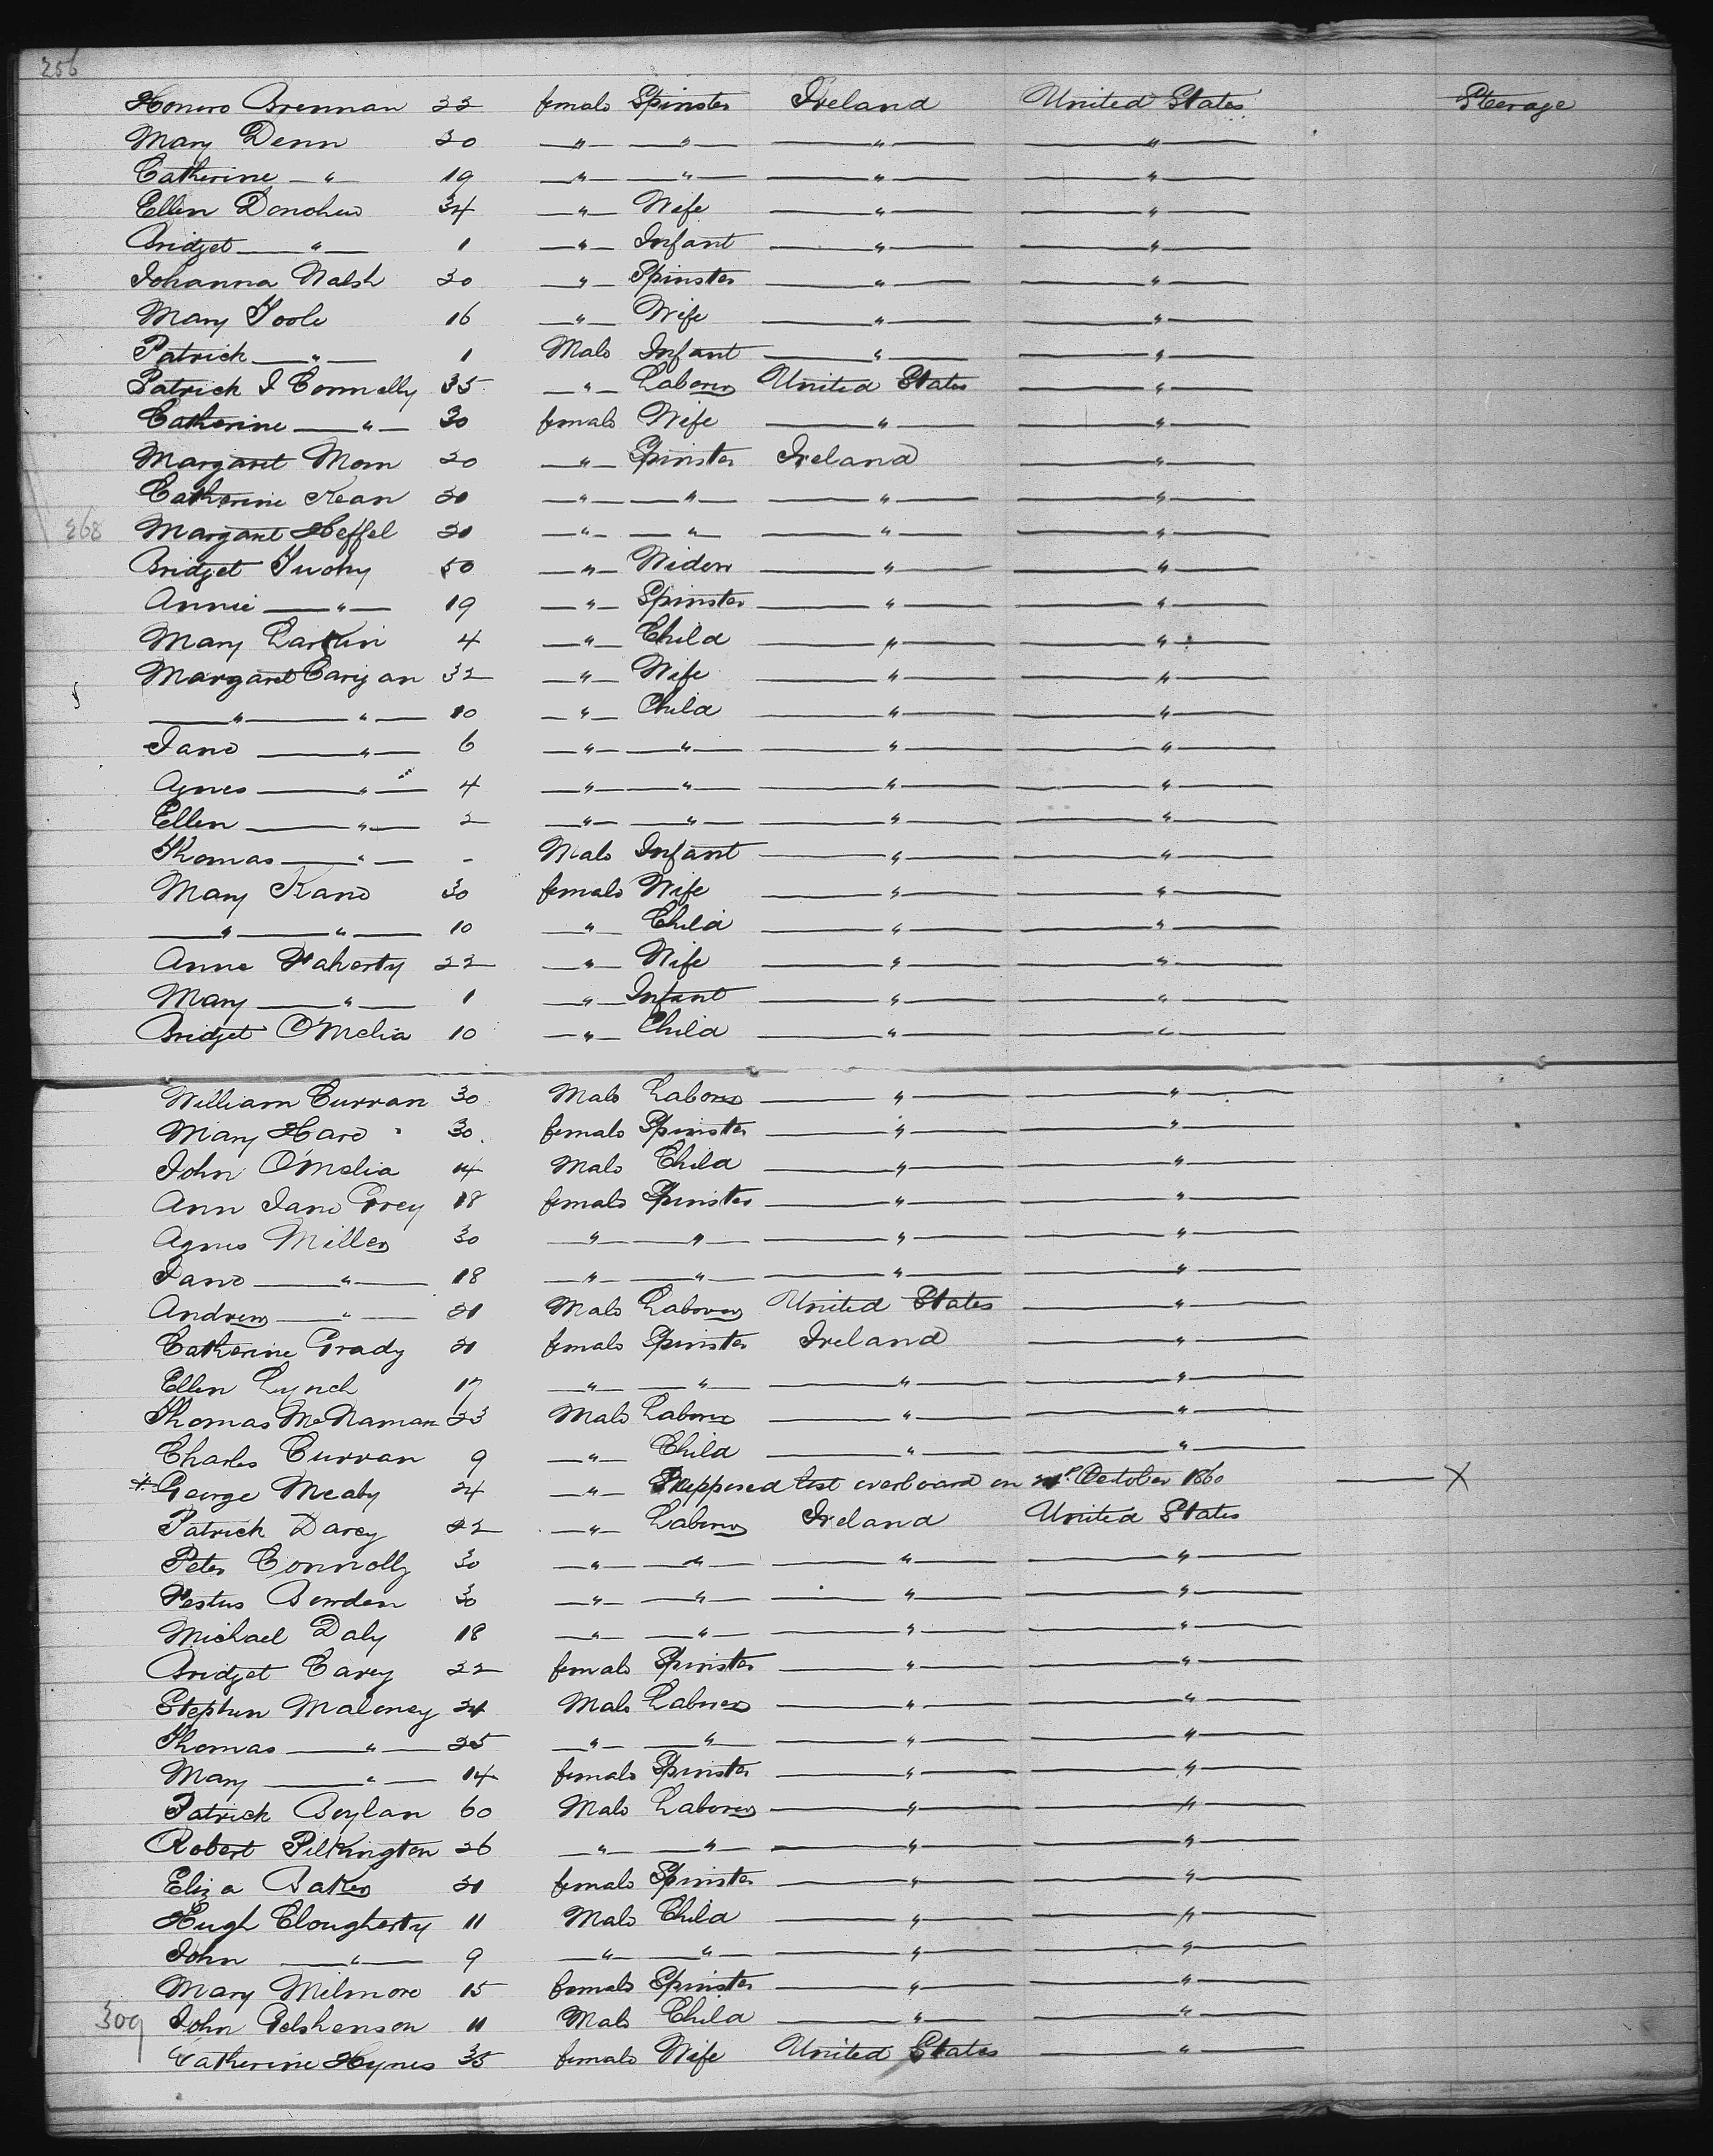 256
Honora Brennan 22 female Spinster Ireland United States Steerage
Mary Denn 20 " " " "
Catherine " 19 " " " "
Ellen Donohue 34 " Wife " "
Bridget " 1 " Infant " "
Johanna Walsh 20 " Spinster " "
Mary Toole 16 " Wife " "
Patrick " 1 Male Infant " "
Patrick J Connelly 35 " Laborer United States "
Catherine " 30 female Wife " "
Margaret Morn 20 " Spinster Ireland "
Catherine Kean 20 " " " "
268 Margaret Heffel 20 " " " "
Bridget Tuohy 50 " Widow " "
Annie " 19 " Spinster " "
Mary Larkin 4 " Child " "
Margaret Carigan 32 " Wife " "
" " 10 " Child " "
Jane " 6 " " " "
Agnes " 4 " " " "
Ellen " 2 " " " "
Thomas " - Male Infant " "
Mary Kane 30 female Wife " "
" " 10 " Child " "
Anne Faherty 22 " Wife " "
Mary " 1 " Infant " "
Bridget O'Melia 10 " Child " "
William Curran 30 Male Laborer " "
Mary Hare 30 female Spinster " "
John O'Melia 14 Male Child " "
Ann Jane Grey 18 female Spinster " "
Agnes Miller 30 " " " "
Jane " 18 " " " "
Andrew " 21 Male Laborer United States "
Catherine Grady 21 female Spinster Ireland "
Ellen Lynch 17 " " " "
Thomas McNamara 23 Male Laborer " "
Charles Curran 9 " Child " "
George Meaby 24 " Supposed lost overboard on October 1860 X
Patrick Darcy 22 " Laborer Ireland United States
Peter Connolly 30 " " " "
Festus Bowden 30 " " " "
Michael Daly 18 " " " "
Bridget Carey 22 female Spinster " "
Stephen Maloney 24 Male Laborer " "
Thomas " 25 " " " "
Mary " 14 female Spinster " "
Patrick Boylan 60 Male Laborer " "
Robert Pilkington 26 " " " "
Eliza Baker 21 female Spinster " "
Hugh Clougherty 11 Male Child " "
John " 9 " " " "
Mary Milmore 15 female Spinster " "
309 John Gelshenson 11 Male Child " "
Catherine Hynes 35 female Wife United States "